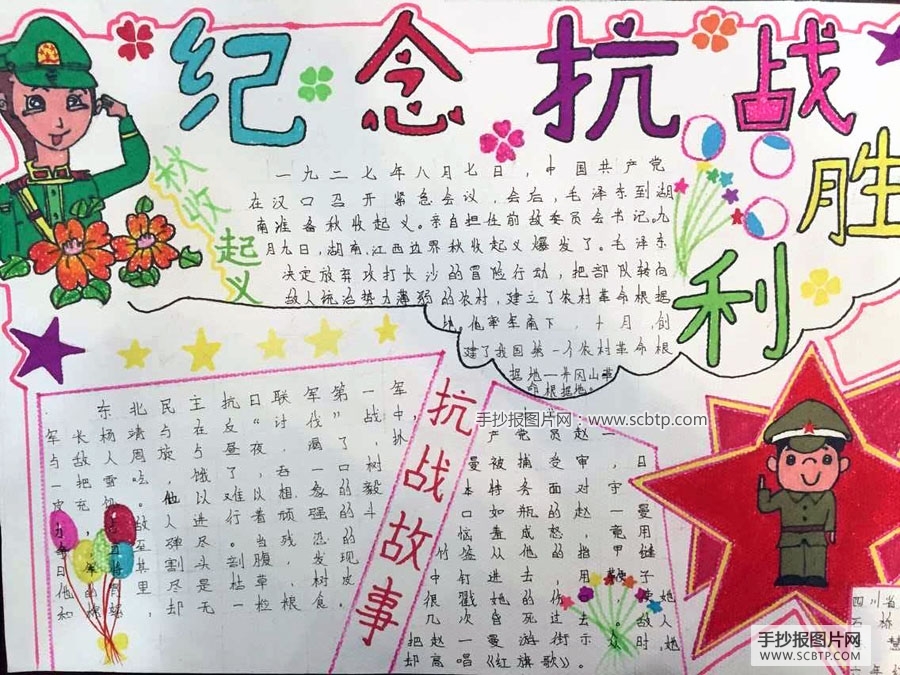 纪念抗战
胜
利
秋收
起义
一九二七年八月七日，中国共产党
在汉口召开紧急会议，会后，毛泽东到湖
南准备秋收起义。亲自担任前敌委员会书记。九
月九日，湖南、江西边界秋收起义爆发了。毛泽东
决定放弃攻打长沙的冒险行动，把部队转向
敌人统治势力薄弱的农村，建立了农村革命根据
地。他率军南下，十月，创
建了我国第一个农村革命根
据地一井冈山革
命根据地。
抗战故事
东北民主抗日联军第一军
军长杨靖与在反“讨伐”战中，
与敌人周旋与昼夜，渴了，抓
一把雪吃，饿了，吞一口树
皮充
他以难以想象的毅
敌人进行着顽强的斗
弹尽。当残忍的
日
其割头剖腹，发现
他
里尽是枯草，树皮
和
却无一粒粮食。
产党员赵一
曼被捕受审，日
本特务面对守
口如瓶的赵一曼
恼羞成怒，竟用
竹签从他的指甲缝
中钉进去，用鞭子
很戳她的伤
她
几次昏死过去。敌人
把赵一曼游街示众时，她
却高唱《红旗歌》。
手抄报图片网：www.scbtp.com
四川省
石桥
慧
手抄报图片网
WWW.SCBTP.COM